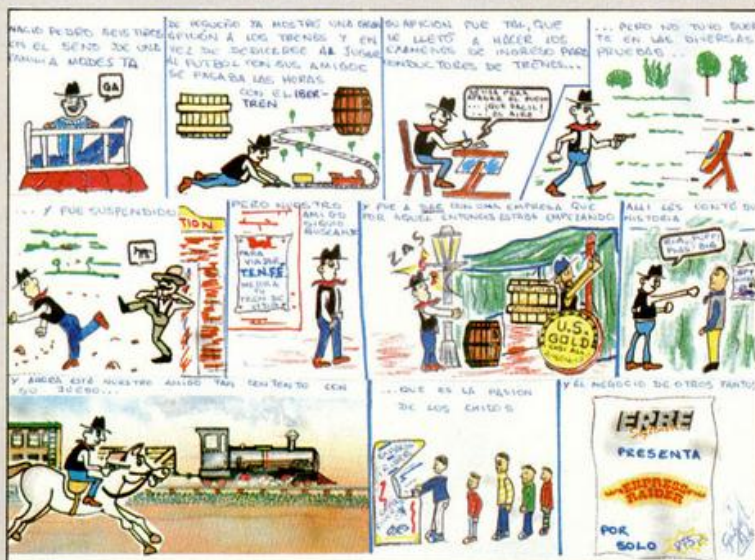 NACIO PEDRO SEIS TIROS
EN EL SENO DE UNA
FAMILIA MODESTA
GA
DE PEQUEÑO YA MOSTRÓ UNA GRAN
AFICION A LOS TRENES Y EN
VEZ DE DEDICARSE A JUGAR
AL FUTBOL CON SUS AMIGOS
SE PASABA LAS HORAS
CON EL IBER-
TREN
SU AFICION FUE TAL, QUE
LE LLEVÓ A HACER LOS
EXAMENES DE INGRESO PARA
CONDUCTORES DE TRENES...
PARA
APAGAR EL FUEGO
... ¡QUE FACIL!
... EL AIRE
... PERO NO TUVO SUER
TE EN LAS DIVERSAS
PRUEBAS...
... Y FUE SUSPENDIDO
TION
PERO NUESTRO
AMIGO
SIGUIO
BUSCANDO
PARA
VIAJAR
TENFE
MEJORA
TU
TREN DE
VIDA
Y FUE A DAR CON UNA EMPRESA QUE
POR AQUEL ENTONCES ESTABA EMPEZANDO
ZAS
U.S.
GOLD
ALLI LES CONTÓ SU
HISTORIA
Y AHORA ESTÁ NUESTRO AMIGO TAN CONTENTO CON
SU JUEGO...
...QUE ES LA PASION
DE LOS CHICOS
Y EL NEGOCIO DE OTROS TANTOS
ERBE
PRESENTA
EXPRESS
RAIDER
POR
SOLO